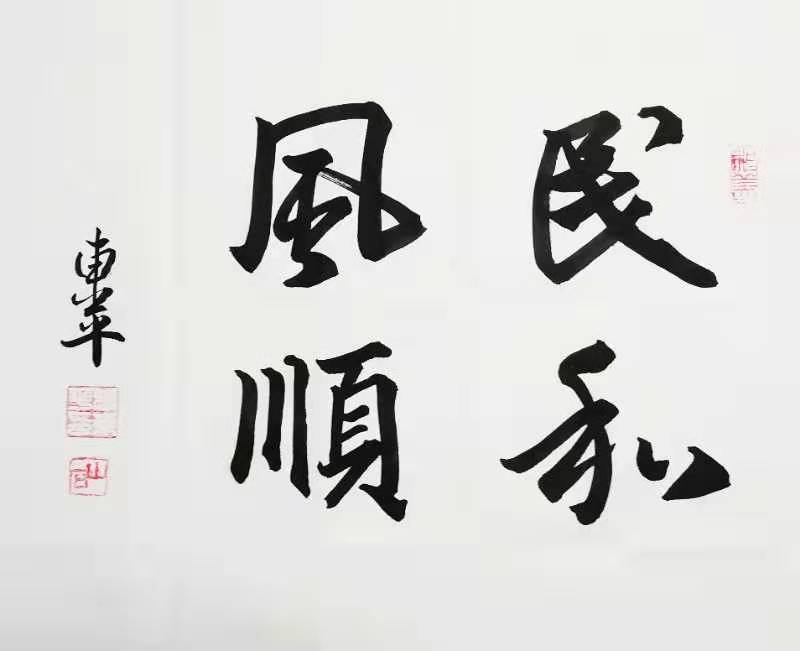 民和
風順
東平